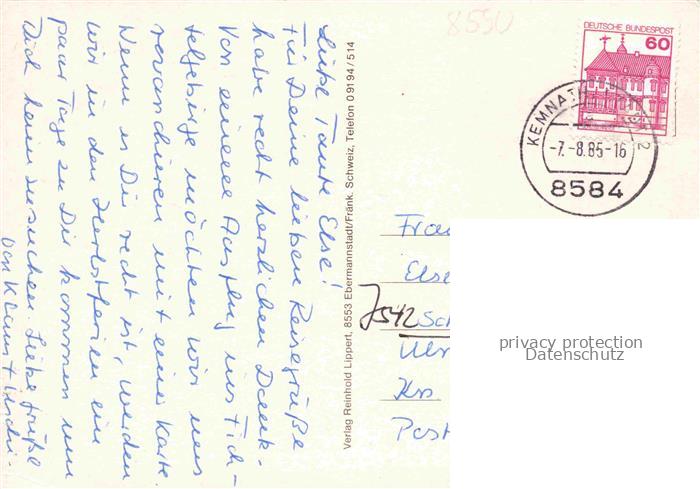 Liebe Tante Else!
Für Deine lieben Reisegrüße
habe recht herzlichen Dank.
Von einem Ausflug ins Fich-
telgebirge möchten wir uns
revanchieren mit einer Karte.
Wenn es Dir recht ist, werden
wir in den Herbstferien ein
paar Tage zu Dir kommen um
Dich heimzusuchen. Liebe Grüße
von Klaus +
Verlag Reinhold Lippert, 8553 Ebermannstadt/Fränk. Schweiz, Telefon 09194/514
8550
DEUTSCHE BUNDESPOST
60
KEMNATH
2
-7.-8.85-16
8584
Frau
Else
7542 Sch
Krs
Post
privacy protection
Datenschutz